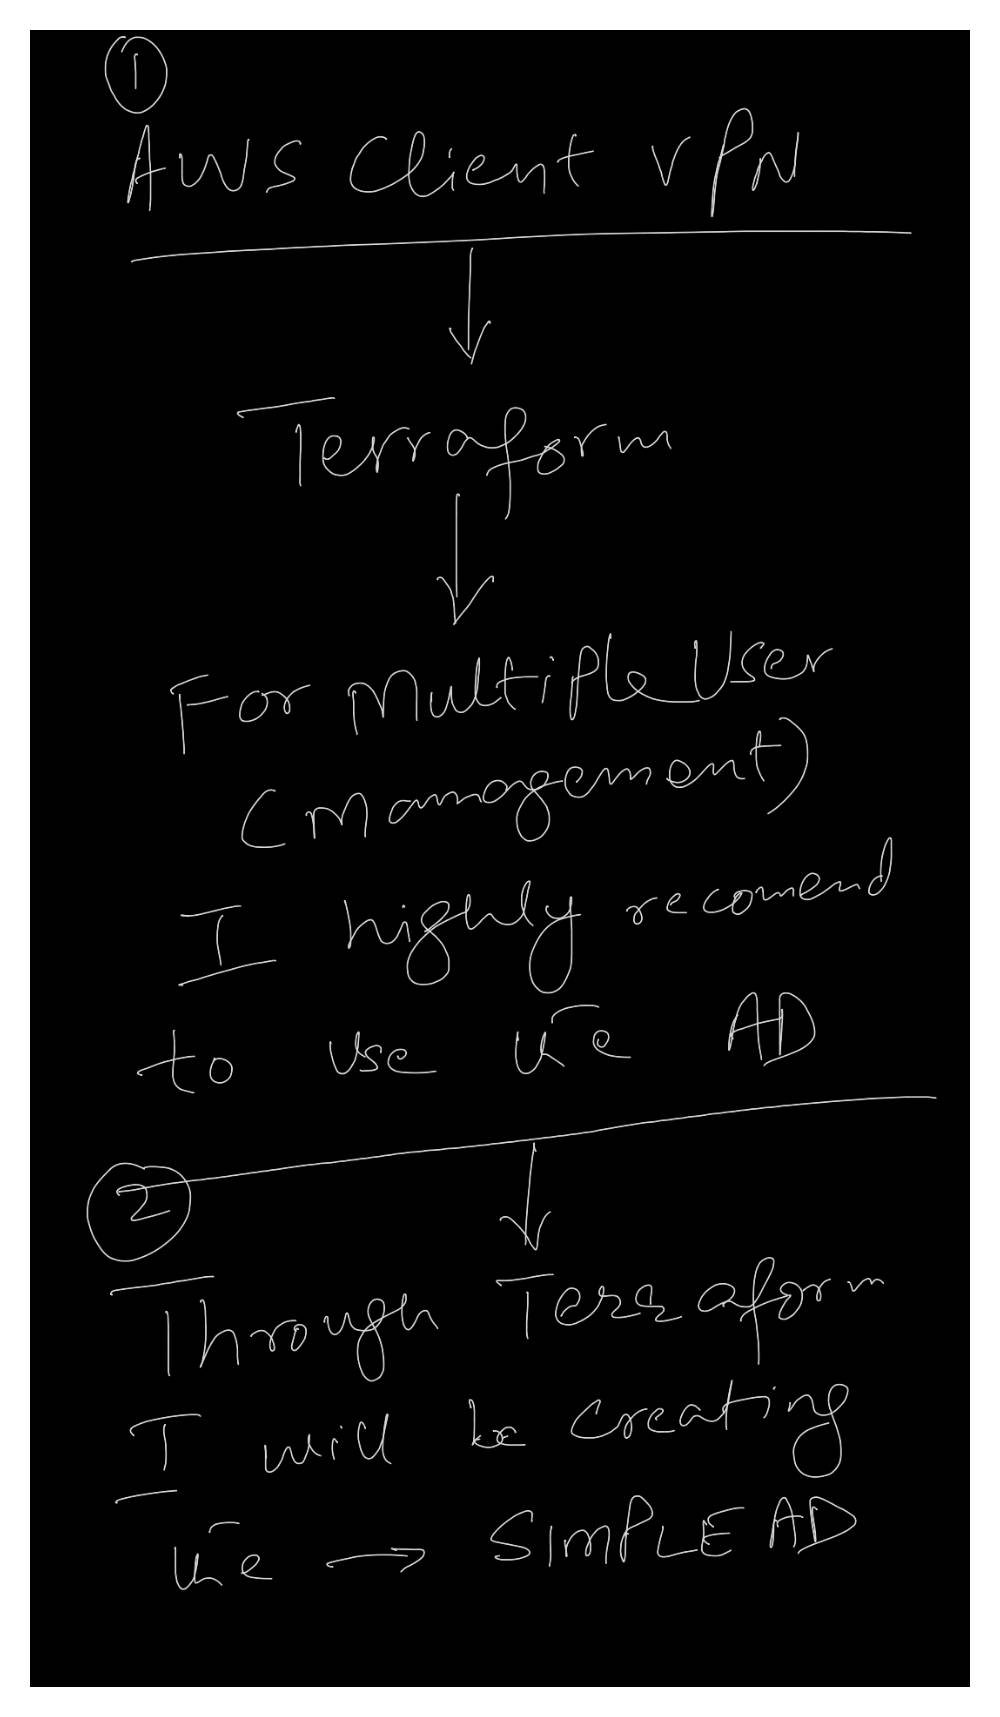 1
AWS Client VPN
Terraform
For Multiple User
(Management)
I highly recomend
to use the AD
2
Through Terraform
I will be creating
the → SIMPLE AD